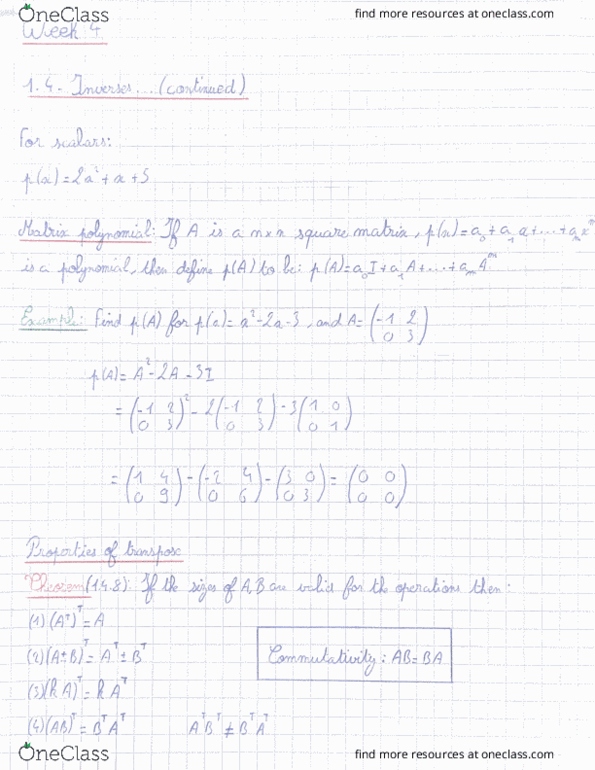 OneClass find more resources at oneclass.com
Week 4
1.4. Inverses... (continued)
For scalars:
p(x)=2a²+x+5
Matrix polynomial: If A is a n×n square matrix, p(x)=a₀+a₁x+...+aₘxᵐ
is a polynomial, then define p(A) to be: p(A)=a₀I+a₁A+...+aₘAᵐ
Example: Find p(A) for p(x)=x²-2x-3, and A=(-1 2
0 3)
p(A)=A²-2A-3I
=(-1 2
0 3)²-2(-1 2
0 3)-3(1 0
0 1)
=(1 4
0 9)-(-2 4
0 6)-(3 0
0 3)=(0 0
0 0)
Properties of transpose
Theorem (1.4.8): If the sizes of A,B are valid for the operations then:
(1) (Aᵀ)ᵀ=A
(2) (A±B)ᵀ=Aᵀ±Bᵀ
Commutativity: AB=BA
(3) (kA)ᵀ=kAᵀ
(4) (AB)ᵀ=BᵀAᵀ AᵀBᵀ≠BᵀAᵀ
OneClass find more resources at oneclass.com